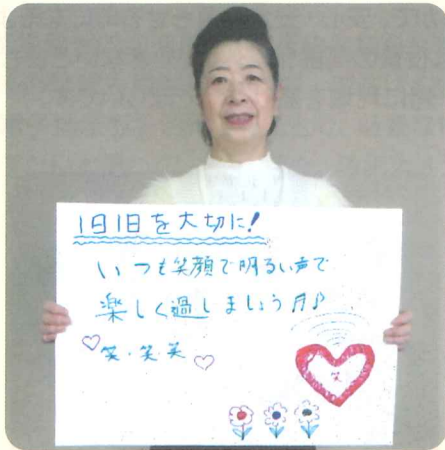 1日1日を大切に!
いつも笑顔で明るい声で
楽しく過しましょう♬♪
♡笑・笑・笑♡
笑